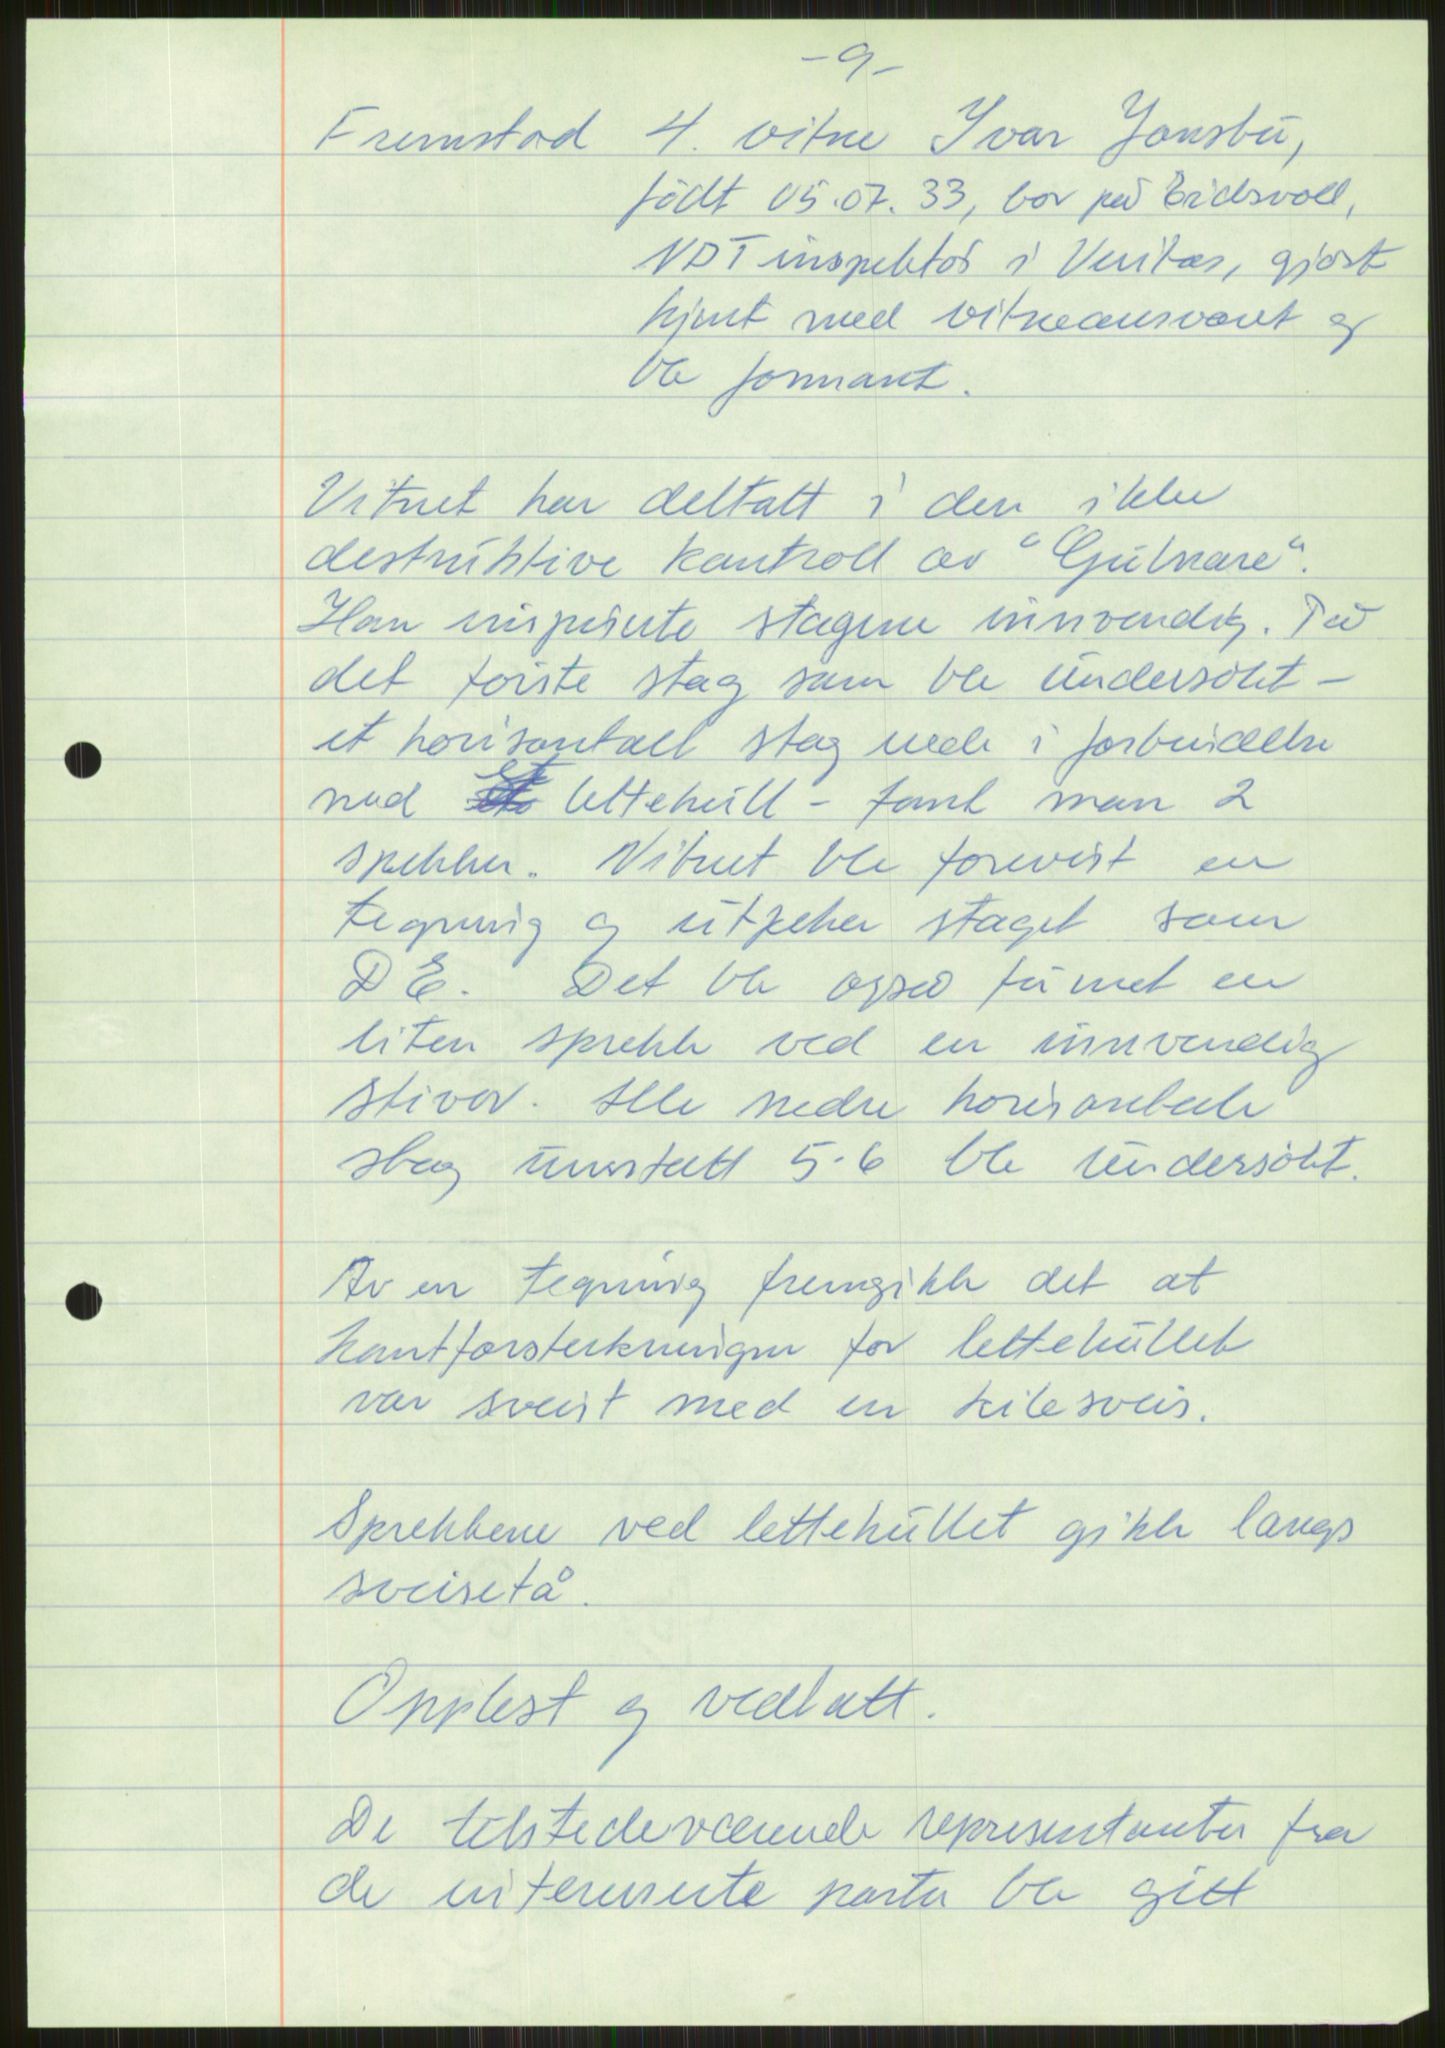 - 9 -
Fremstod 4. vitne Ivar Jonsbu,
født 05.07.33, bor på Eidsvoll,
NDT inspektør i Veritas, gjort
kjent med vitneansvaret og
ble formant.
Vitnet har deltatt i den ikke
destruktive kontroll av "Gulnare".
Han inspiserte stagene innvendig. På
det første stag som ble undersøkt -
et horisontalt stag nede i forbindelse
med et lettehull - fant man 2
sprekker. Vitnet ble forevist en
tegning og utpeker staget som
D E. Det ble også funnet en
liten sprekk ved en innvendig
stiver. Alle nedre horisontale
stag unntatt 5-6 ble undersøkt.
Av en tegning fremgikk det at
kantforsterkningen for lettehullet
var sveist med en kilesveis.
Sprekkene ved lettehullet gikk langs
sveisetå.
Opplest og vedtatt.
De tilstedeværende representanter fra
de interesserte parter ble gitt